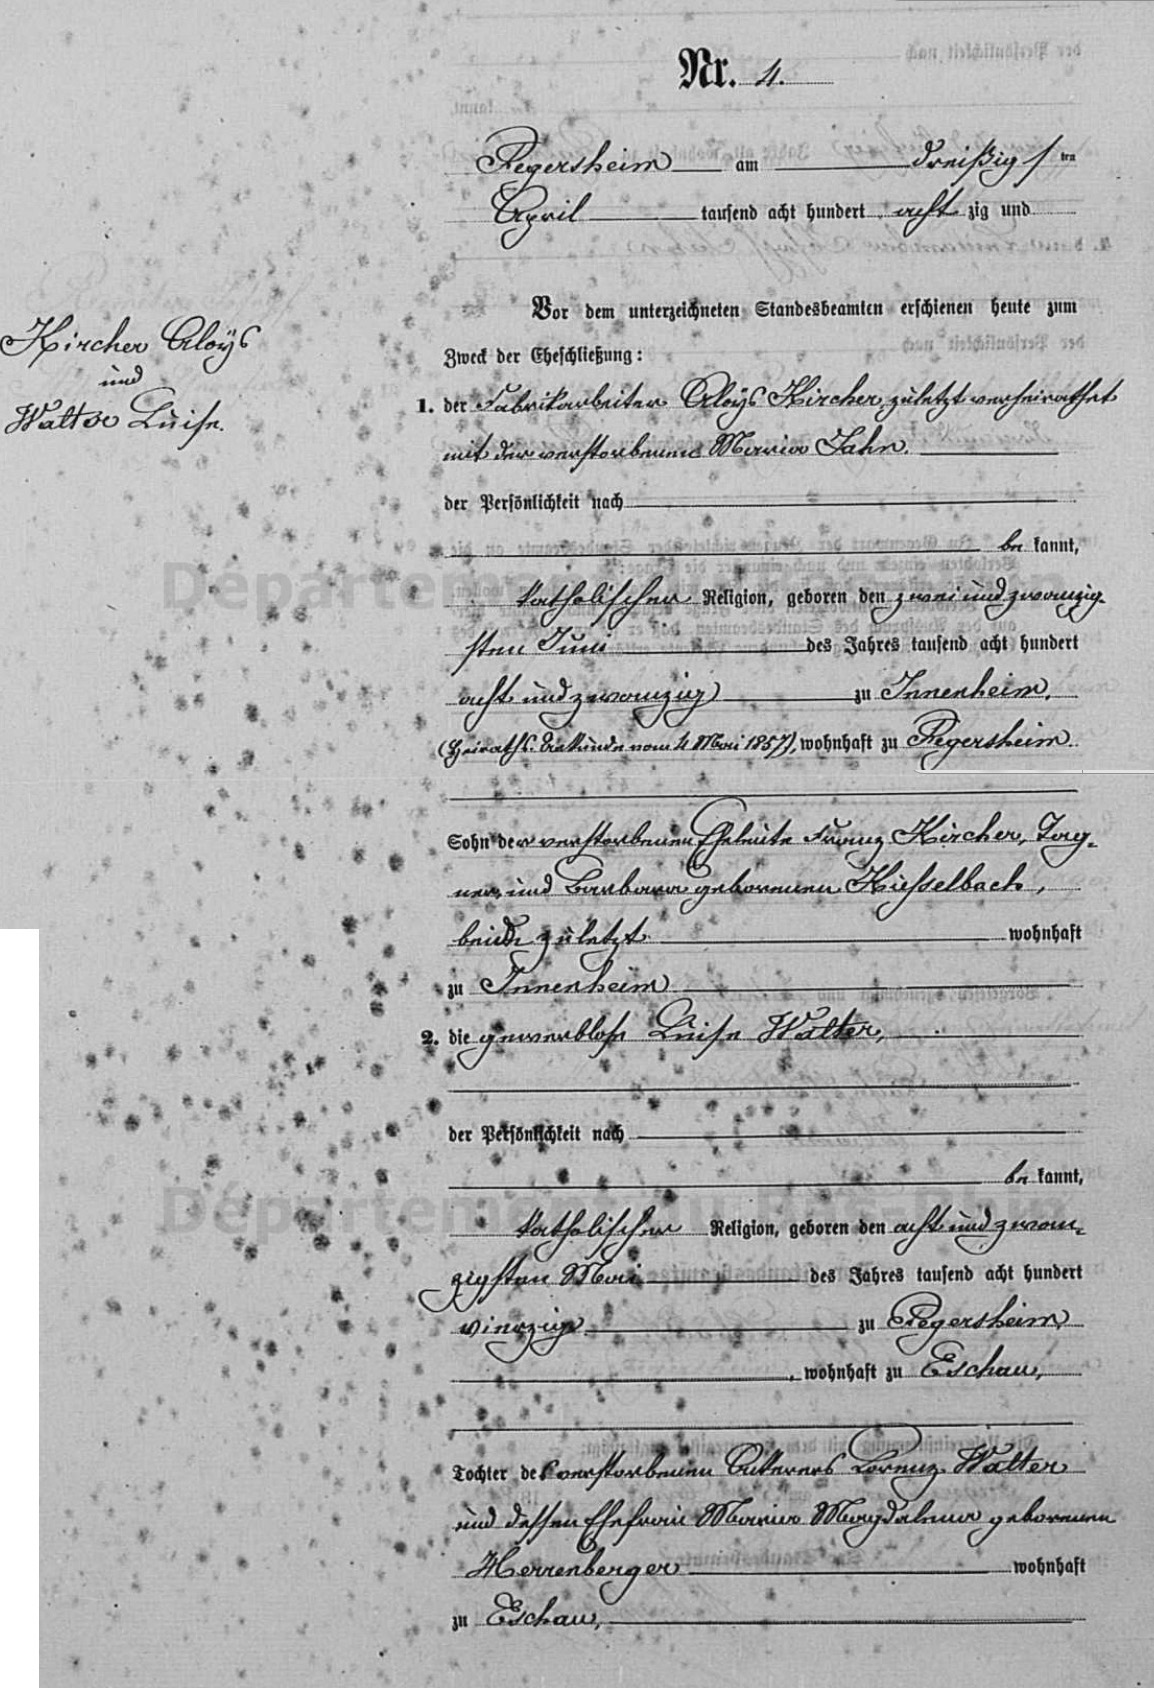 Nr. 4.
Fegersheim am dreißigsten
April tausend acht hundert achtzig und
Kircher Aloÿs
und
Walter Luise.
Vor dem unterzeichneten Standesbeamten erschienen heute zum
Zweck der Eheschließung:
1. der Fabrikarbeiter Aloÿs Kircher, zuletzt verheirathet
mit der verstorbenen Maria Jahn.
der Persönlichkeit nach
bekannt,
katholischer Religion, geboren den zwei und zwanzig-
sten Juni des Jahres tausend acht hundert
acht und zwanzig zu Innenheim,
(Heiraths-Urkunde vom 4 Mai 1857), wohnhaft zu Fegersheim
Sohn der verstorbenen Eheleute Franz Kircher, Tag-
ner, und Barbara gebornen Kiesselbach,
beide zuletzt wohnhaft
zu Innenheim
2. die gewerblose Luise Walter,
der Persönlichkeit nach
bekannt,
katholischer Religion, geboren den acht und zwan-
zigsten Mai des Jahres tausend acht hundert
vierzig zu Fegersheim
, wohnhaft zu Eschau,
Tochter des verstorbenen Ackerers Lorenz Walter
und dessen Ehefrau Maria Magdalena gebornenen
Herrenberger wohnhaft
zu Eschau,